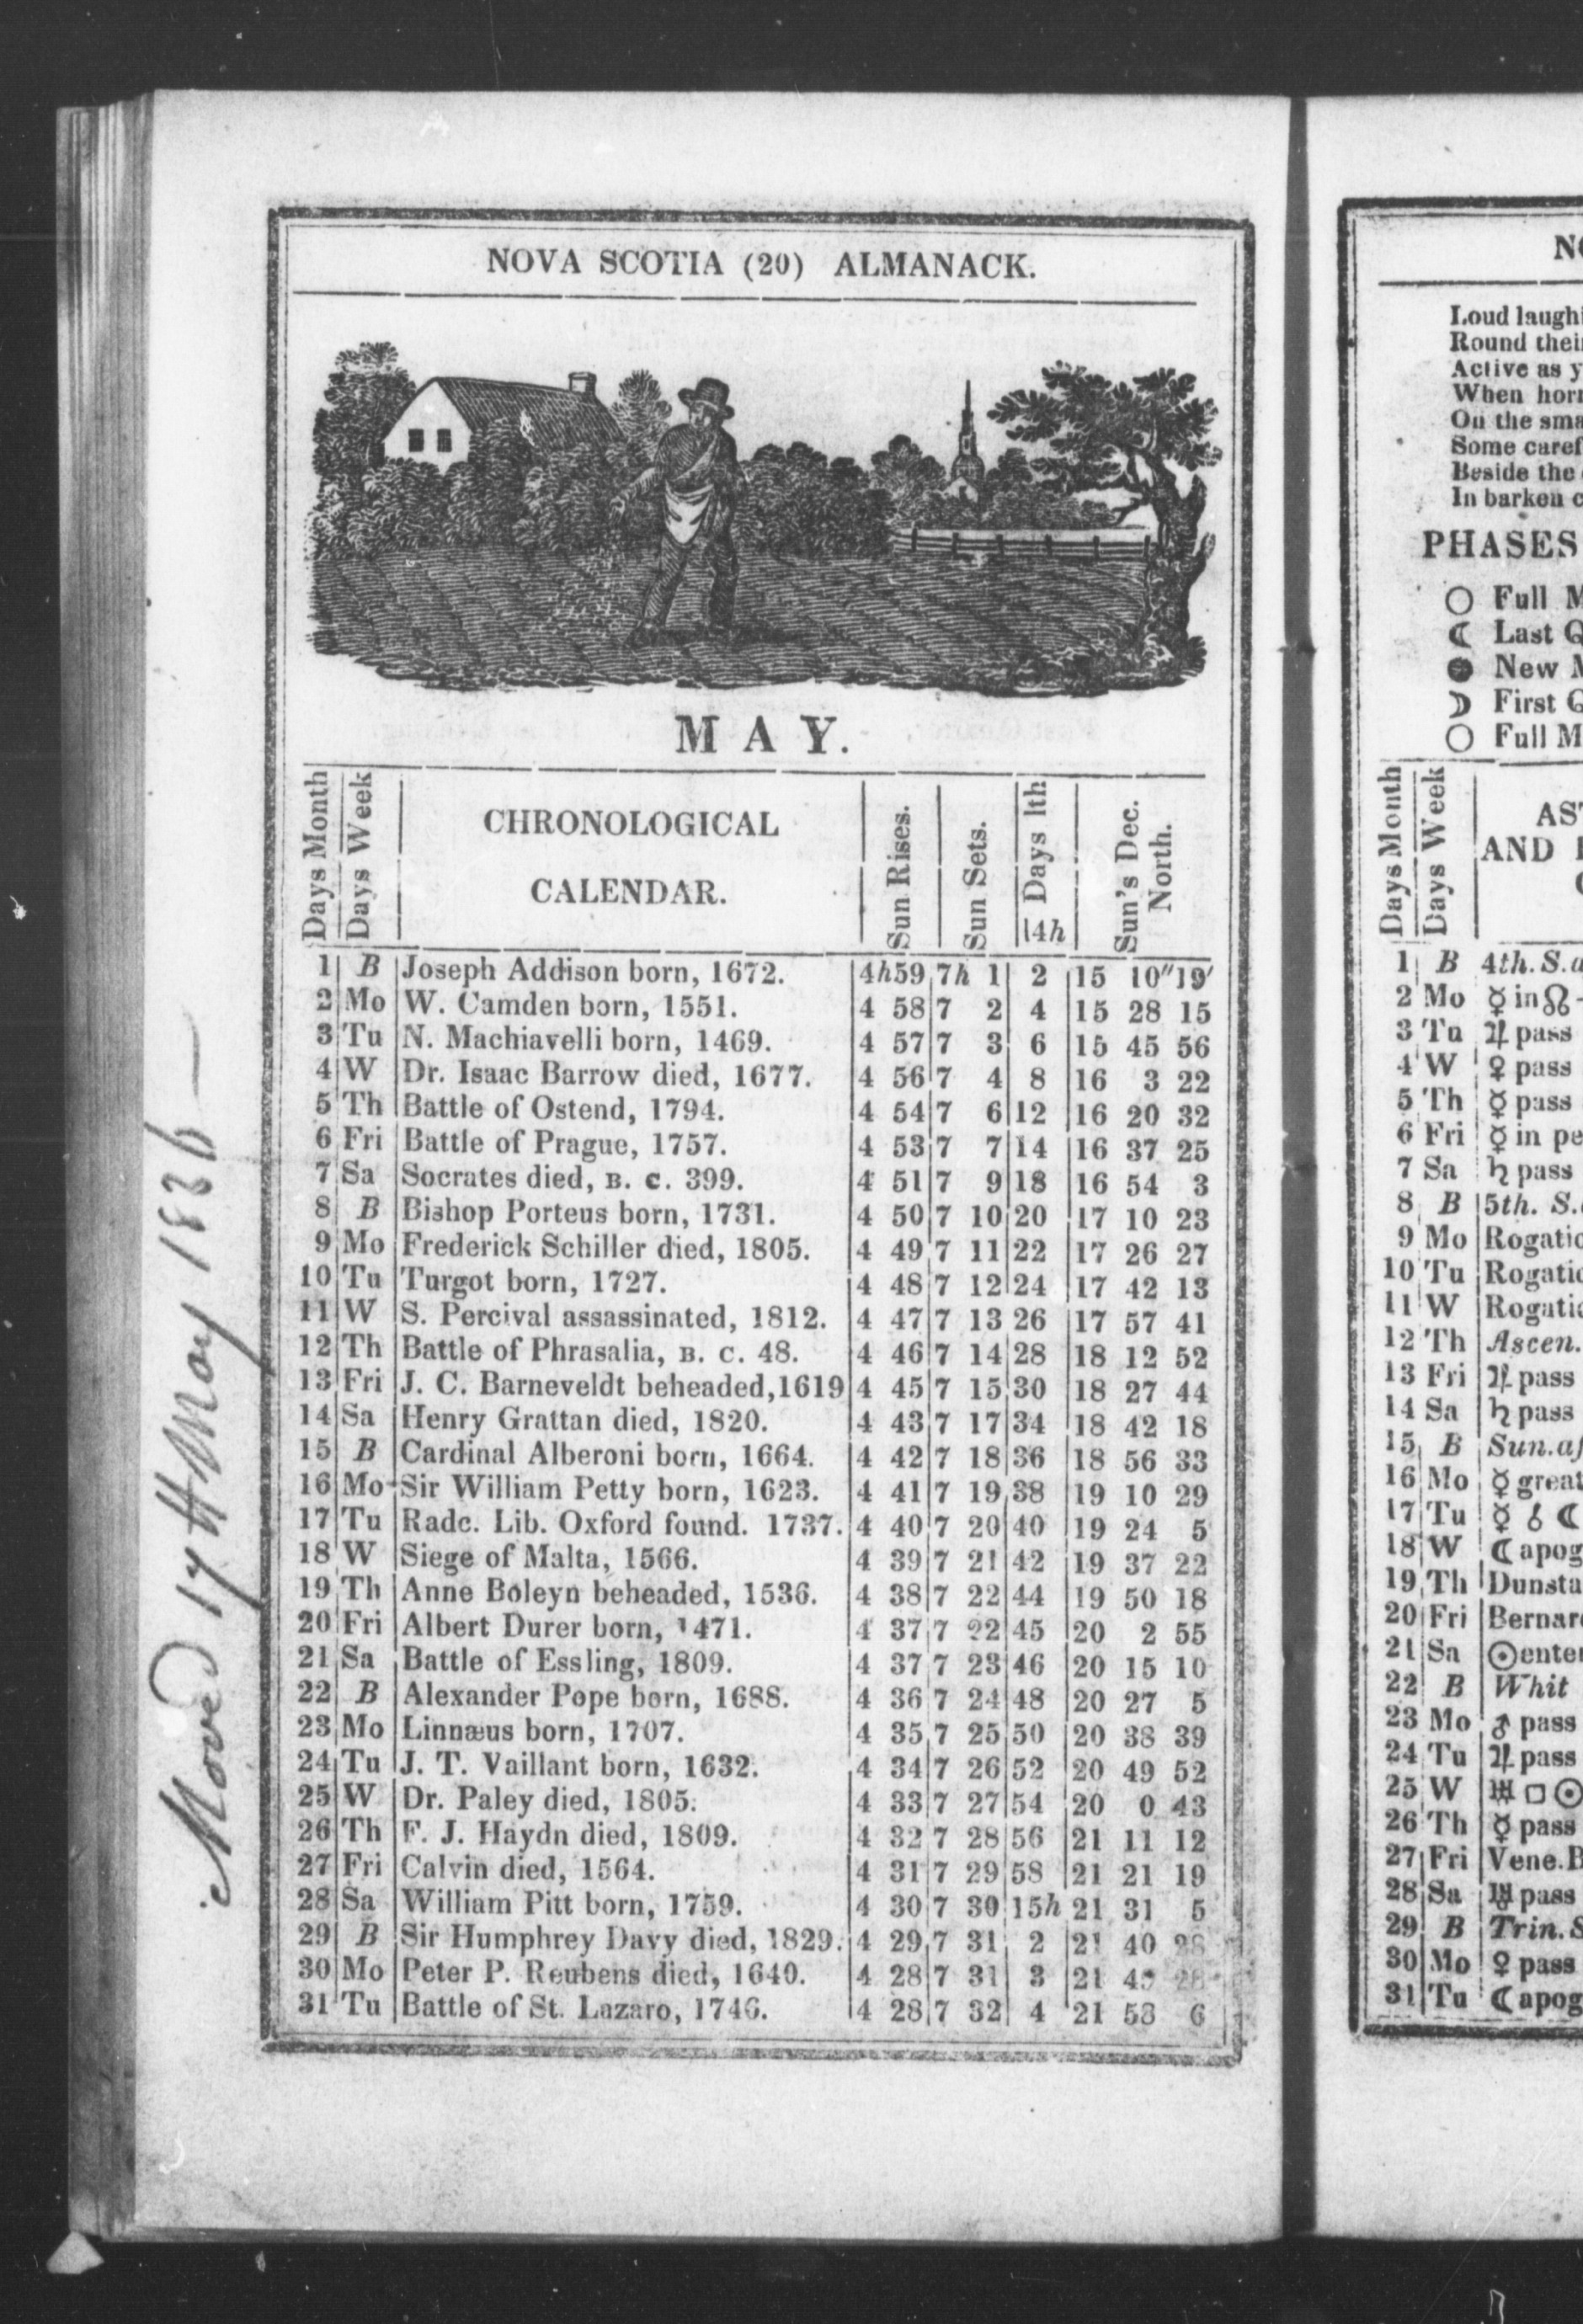 NOVA SCOTIA (20) ALMANACK.
MAY.
Days Month
Days Week
CHRONOLOGICAL
CALENDAR.
Sun Rises.
Sun Sets.
Days lth
14h
Sun's Dec.
North.
1 B Joseph Addison born, 1672. 4h59 7h 1 2 15 10" 19'
2 Mo W. Camden born, 1551. 4 58 7 2 4 15 28 15
3 Tu N. Machiavelli born, 1469. 4 57 7 3 6 15 45 56
4 W Dr. Isaac Barrow died, 1677. 4 56 7 4 8 16 3 22
5 Th Battle of Ostend, 1794. 4 54 7 6 12 16 20 32
6 Fri Battle of Prague, 1757. 4 53 7 7 14 16 37 25
7 Sa Socrates died, B. C. 399. 4 51 7 9 18 16 54 3
8 B Bishop Porteus born, 1731. 4 50 7 10 20 17 10 23
9 Mo Frederick Schiller died, 1805. 4 49 7 11 22 17 26 27
10 Tu Turgot born, 1727. 4 48 7 12 24 17 42 13
11 W S. Percival assassinated, 1812. 4 47 7 13 26 17 57 41
12 Th Battle of Phrasalia, B. C. 48. 4 46 7 14 28 18 12 52
13 Fri J. C. Barneveldt beheaded,1619 4 45 7 15 30 18 27 44
14 Sa Henry Grattan died, 1820. 4 43 7 17 34 18 42 18
15 B Cardinal Alberoni born, 1664. 4 42 7 18 36 18 56 33
16 Mo Sir William Petty born, 1623. 4 41 7 19 38 19 10 29
17 Tu Radc. Lib. Oxford found. 1737. 4 40 7 20 40 19 24 5
18 W Siege of Malta, 1566. 4 39 7 21 42 19 37 22
19 Th Anne Boleyn beheaded, 1536. 4 38 7 22 44 19 50 18
20 Fri Albert Durer born, 1471. 4 37 7 22 45 20 2 55
21 Sa Battle of Essling, 1809. 4 37 7 23 46 20 15 10
22 B Alexander Pope born, 1688. 4 36 7 24 48 20 27 5
23 Mo Linnæus born, 1707. 4 35 7 25 50 20 38 39
24 Tu J. T. Vaillant born, 1632. 4 34 7 26 52 20 49 52
25 W Dr. Paley died, 1805. 4 33 7 27 54 20 0 43
26 Th F. J. Haydn died, 1809. 4 32 7 28 56 21 11 12
27 Fri Calvin died, 1564. 4 31 7 29 58 21 21 19
28 Sa William Pitt born, 1759. 4 30 7 30 15h 21 31 5
29 B Sir Humphrey Davy died, 1829. 4 29 7 31 2 21 40 28
30 Mo Peter P. Reubens died, 1640. 4 28 7 31 3 21
31 Tu Battle of St. Lazaro, 1746. 4 28 7 32 4 21 58 6
Moved 17th May 1836
Loud
Round
Active as
When
On the
Some
Beside the
In barken
PHASES
○ Full
☾ Last
● New
☽ First
○ Full
Days Month
Days Week
AND
1 B 4th.
2 Mo ☿ in ☊
3 Tu ♃ pass
4 W ♀ pass
5 Th ☿ pass
6 Fri ☿ in
7 Sa ♄ pass
8 B 5th.
9 Mo
10 Tu
11 W
12 Th Ascen.
13 Fri ♃ pass
14 Sa ♄ pass
15 B Sun.
16 Mo ☿
17 Tu ☿ ☌ ☾
18 W ☾
19 Th
20 Fri
21 Sa ☉
22 B Whit
23 Mo ♂ pass
24 Tu ♃ pass
25 W ♅ □ ☉
26 Th ☿ pass
27 Fri Vene.
28 Sa ♅ pass
29 B Trin.
30 Mo ♀ pass
31 Tu ☾